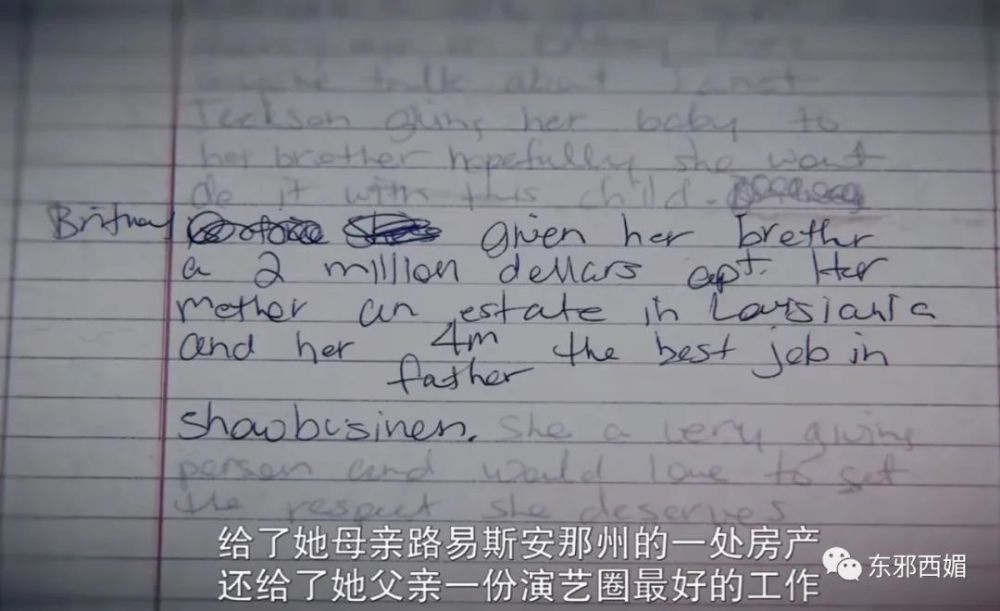 anyone talk about Janet
Jeckson giving her baby to
her brother hopefully she wont
do it with this child.
Britney given her brether
a 2 million dellars apt. Her
mether an estate in Lousiania
and her 4m the best job in
father
showbusinen. She a very giving
person and would love to get
the respect she deserves
给了她母亲路易斯安那州的一处房产
还给了她父亲一份演艺圈最好的工作
东邪西媚